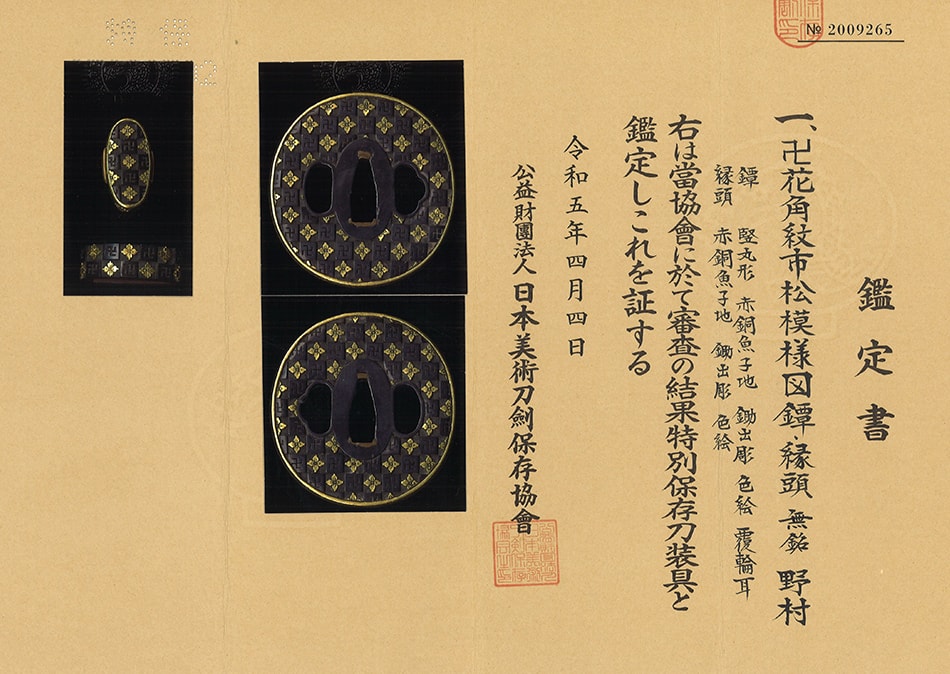 № 2009265
鑑定書
一、卍花角紋市松模様図鐔・縁頭 無銘 野村
鐔 竪丸形 赤銅魚子地 鋤出彫 色絵 覆輪耳
縁頭 赤銅魚子地 鋤出彫 色絵
右は當協會に於て審査の結果特別保存刀装具と
鑑定しこれを証する
令和五年四月四日
公益財團法人 日本美術刀劍保存協會